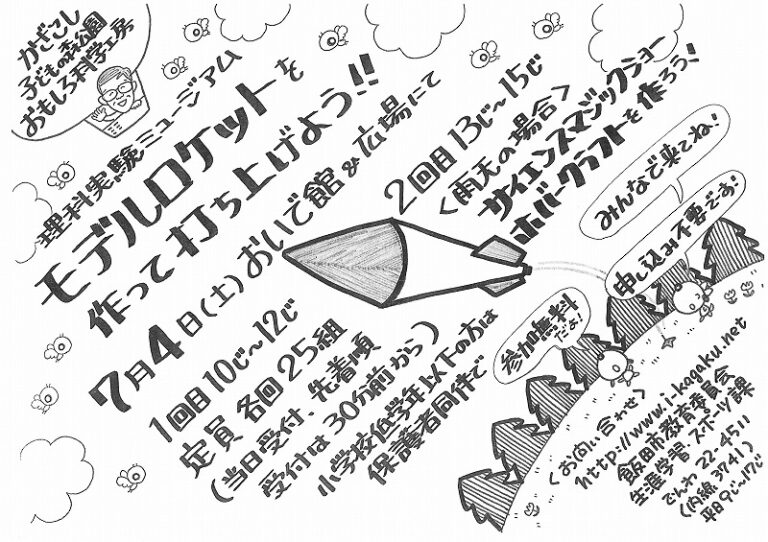 かざこし
子どもの森公園
おもしろ科学工房
理科実験ミュージアム
モデルロケットを
作って打ち上げよう!!
7月4日(土)おいで館&広場にて
1回目10じ〜12じ
2回目13じ〜15じ
定員 各回25組
(当日受付、先着順
受付は30分前から)
小学校低学年以下の方は
保護者同伴で
<雨天の場合>
サイエンスマジックショー
ホバークラフトを作ろう!
みんなで来てね!
申し込み不要です!
参加無料
だよ!
<お問い合わせ>
http://www.i-kagaku.net
飯田市教育委員会
生涯学習・スポーツ課
でんわ 22-4511
(内線 3741)
平日9じ〜17じ